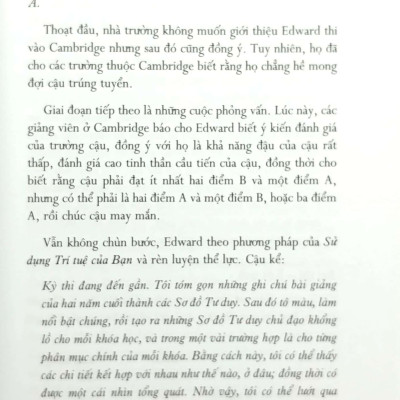 A.
Thoạt đầu, nhà trường không muốn giới thiệu Edward thi
vào Cambridge nhưng sau đó cũng đồng ý. Tuy nhiên, họ đã
cho các trường thuộc Cambridge biết rằng họ chẳng hề mong
đợi cậu trúng tuyển.
Giai đoạn tiếp theo là những cuộc phỏng vấn. Lúc này, các
giảng viên ở Cambridge báo cho Edward biết ý kiến đánh giá
của trường cậu, đồng ý với họ là khả năng đậu của cậu rất
thấp, đánh giá cao tinh thần cầu tiến của cậu, đồng thời cho
biết rằng cậu phải đạt ít nhất hai điểm B và một điểm A,
nhưng có thể phải là hai điểm A và một điểm B, hoặc ba điểm
A, rồi chúc cậu may mắn.
Vẫn không chùn bước, Edward theo phương pháp của Sử
dụng Trí tuệ của Bạn và rèn luyện thể lực. Cậu kể:
Kỳ thi đang đến gần. Tôi tóm gọn những ghi chú bài giảng
của hai năm cuối thành các Sơ đồ Tư duy. Sau đó tô màu, làm
nổi bật chúng, rồi tạo ra những Sơ đồ Tư duy chủ đạo khổng
lồ cho mỗi khóa học, và trong một vài trường hợp là cho từng
phân mục chính của mỗi khóa. Bằng cách này, tôi có thể thấy
các chi tiết kết hợp với nhau như thế nào, ở đâu; đồng thời có
được một cái nhìn tổng quát. Nhờ vậy, tôi có thể lướt qua